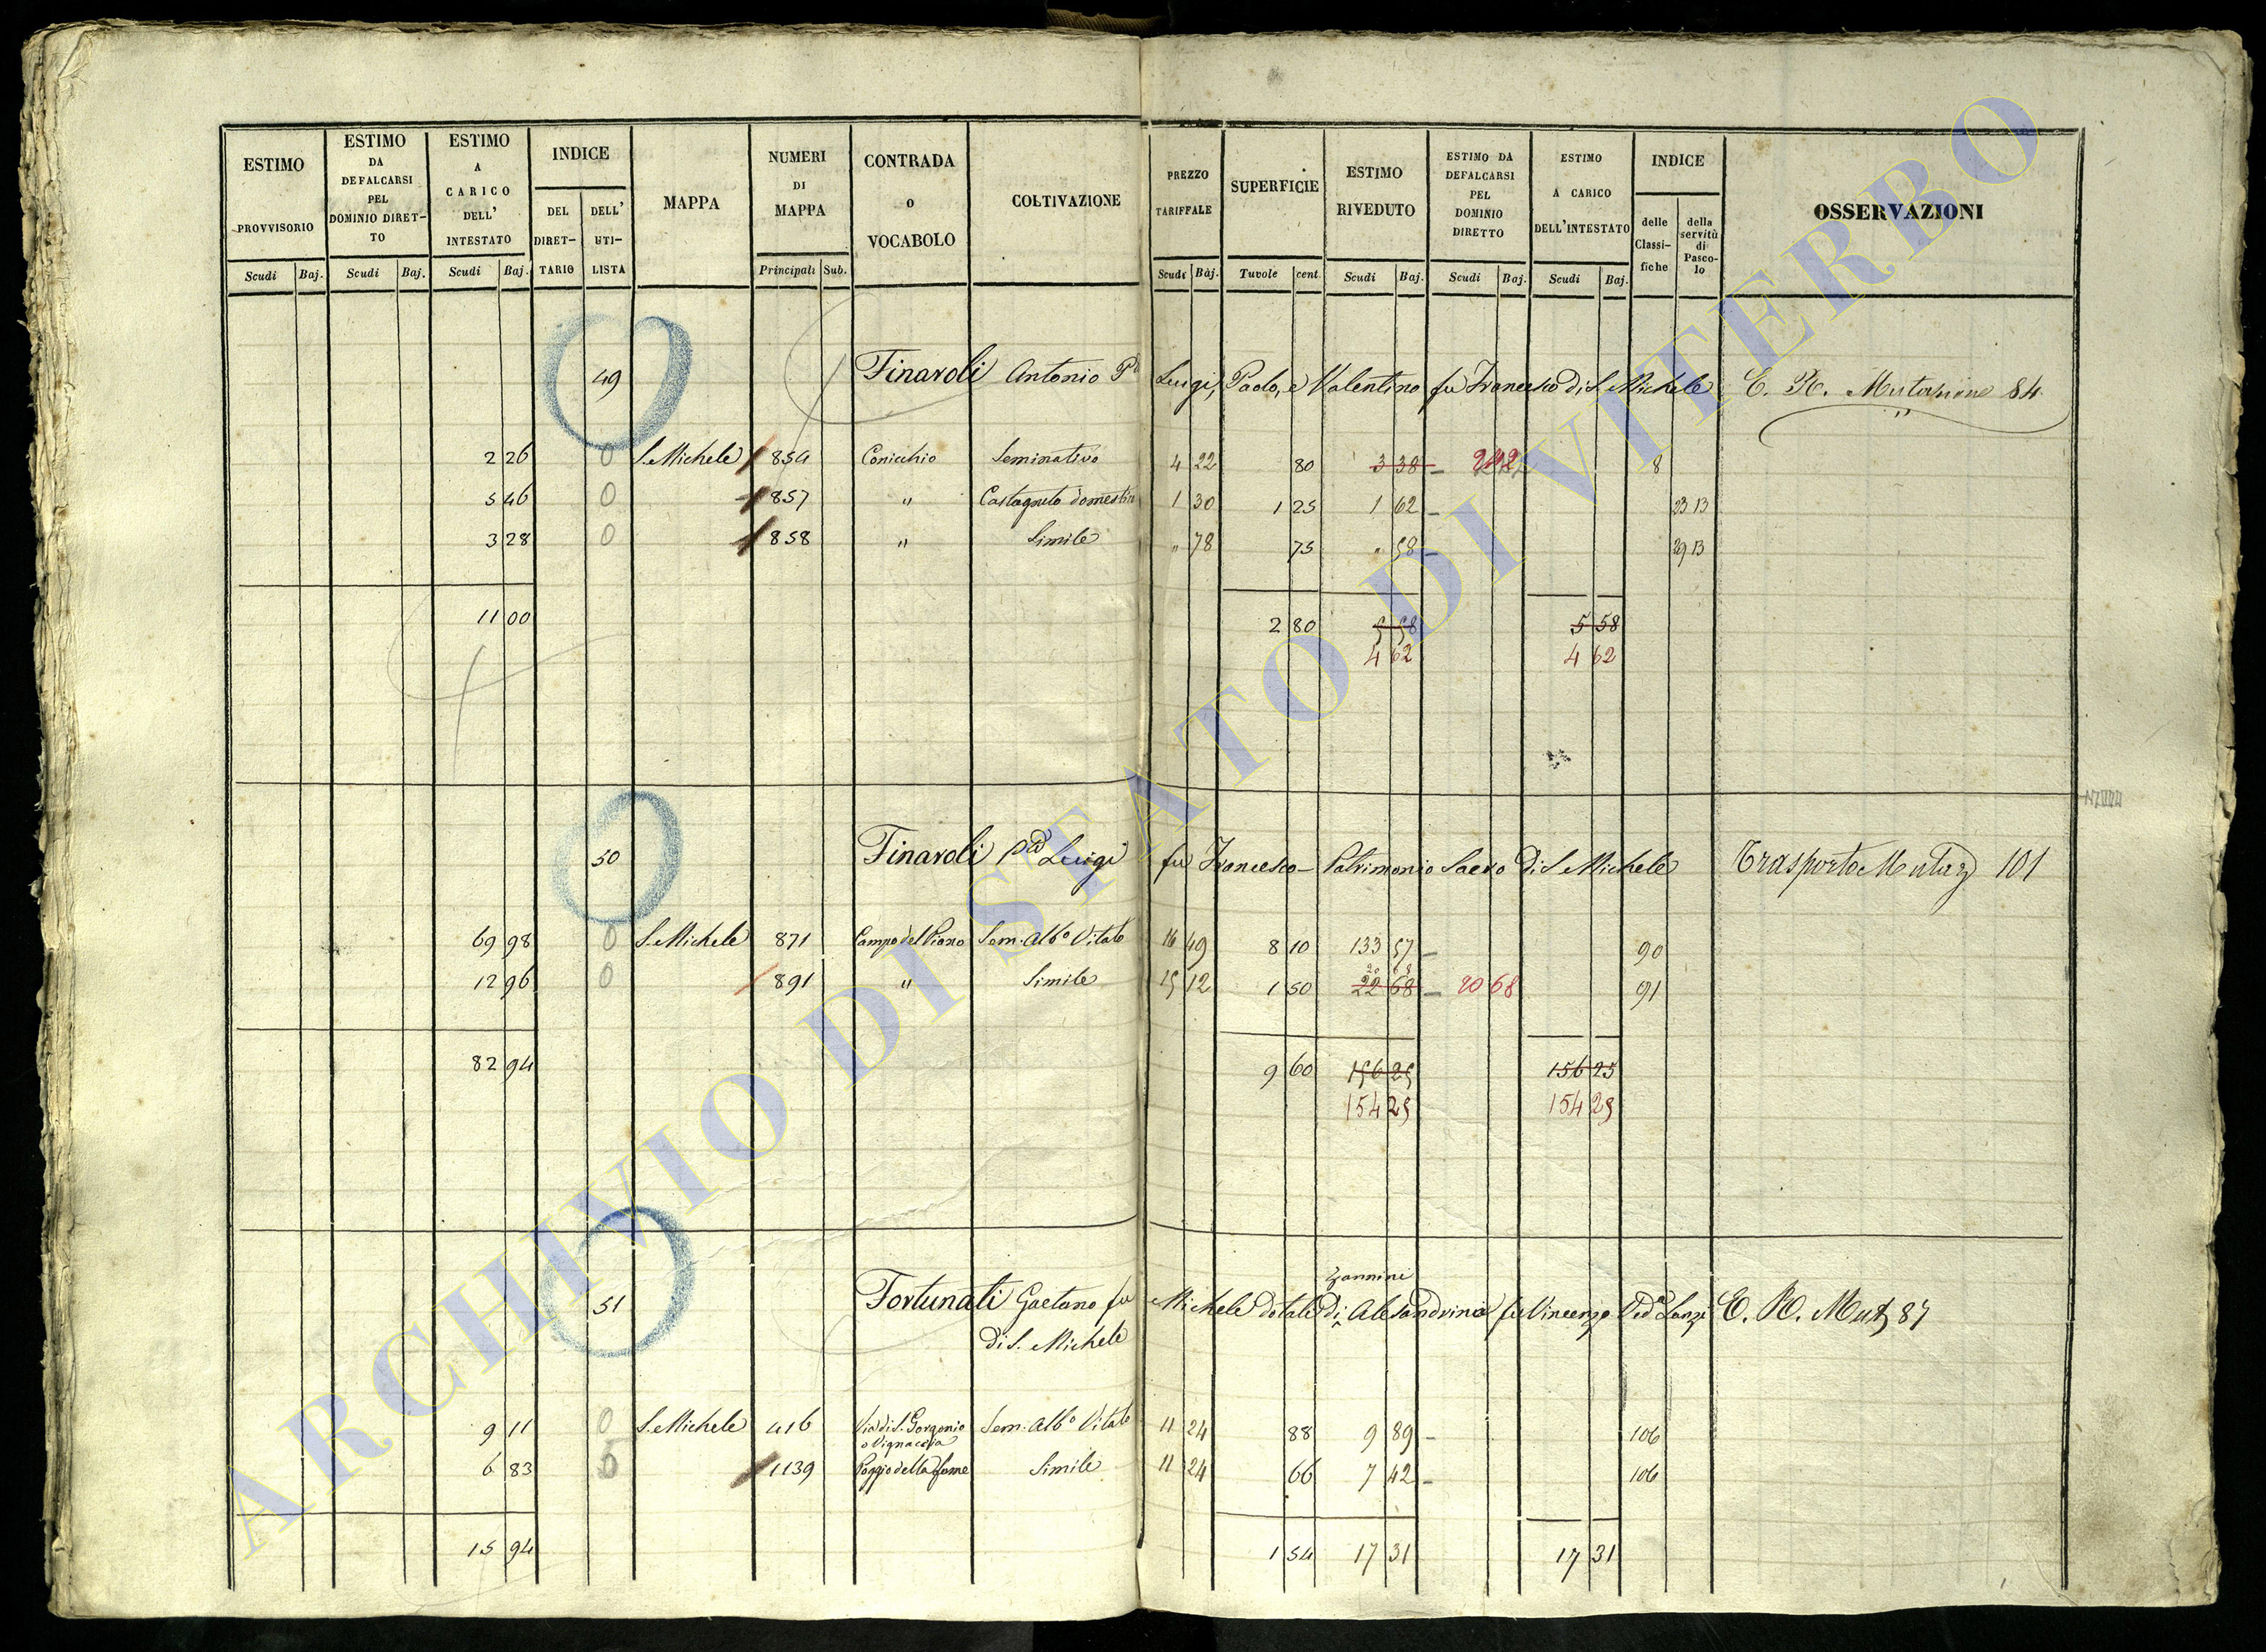 ESTIMO PROVVISORIO Scudi Baj.
ESTIMO DA DEFALCARSI PEL DOMINIO DIRETTO Scudi Baj.
ESTIMO A CARICO DELL' INTESTATO Scudi Baj.
INDICE DEL DIRETTARIO DELL' UTILISTA
MAPPA
NUMERI DI MAPPA Principali Sub.
CONTRADA o VOCABOLO
COLTIVAZIONE
PREZZO TARIFFALE Scudi Baj.
SUPERFICIE Tavole cent.
ESTIMO RIVEDUTO Scudi Baj.
ESTIMO DA DEFALCARSI PEL DOMINIO DIRETTO Scudi Baj.
ESTIMO A CARICO DELL'INTESTATO Scudi Baj.
INDICE delle Classifiche della servitù di Pascolo
OSSERVAZIONI
49 Finaroli Antonio Luigi, Paolo, e Valentino fu Francesco di S. Michele Mutazione 84
2 26 0 S. Michele 854 Conicchio Seminativo 4 22 80 3 38 8
5 46 0 857 " Castagneto domestico 1 30 1 25 1 62 23 13
3 28 0 858 " Simile " 78 75 " 58 29 13
11 00 2 80 5 58 5 58
4 62 4 62
50 Finaroli Luigi fu Francesco - Patrimonio Sacro di S. Michele Trasporto Mutaz 101
69 98 0 S. Michele 871 Campo del Piano Sem. Alb.o Vitato 16 49 8 10 133 57 90
12 96 0 891 " Simile 15 12 1 50 22 68 20 68 91
82 94 9 60 156 25 156 25
154 25 154 25
51 Fortunati Gaetano fu Michele dotale di Zannini Alesandrina fu Vincenzo Ved.a Lanzi Mutaz 87
di S. Michele
9 11 0 S. Michele 416 Via di S. Gorgonio o Vignaccia Sem. Alb.o Vitato 11 24 88 9 89 106
6 83 0 1139 Poggio della fame Simile 11 24 66 7 42 106
15 94 1 54 17 31 17 31
ARCHIVIO DI STATO DI VITERBO